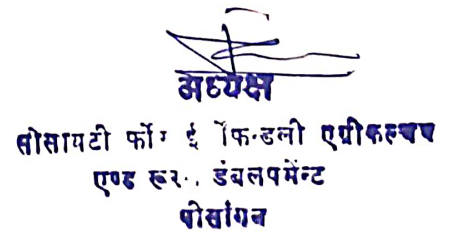 अध्यक्ष
सोसायटी फॉर ई फ्रेन्डली एग्रीकल्चर
एण्ड रूरल डवलपमेन्ट
पीसांगन